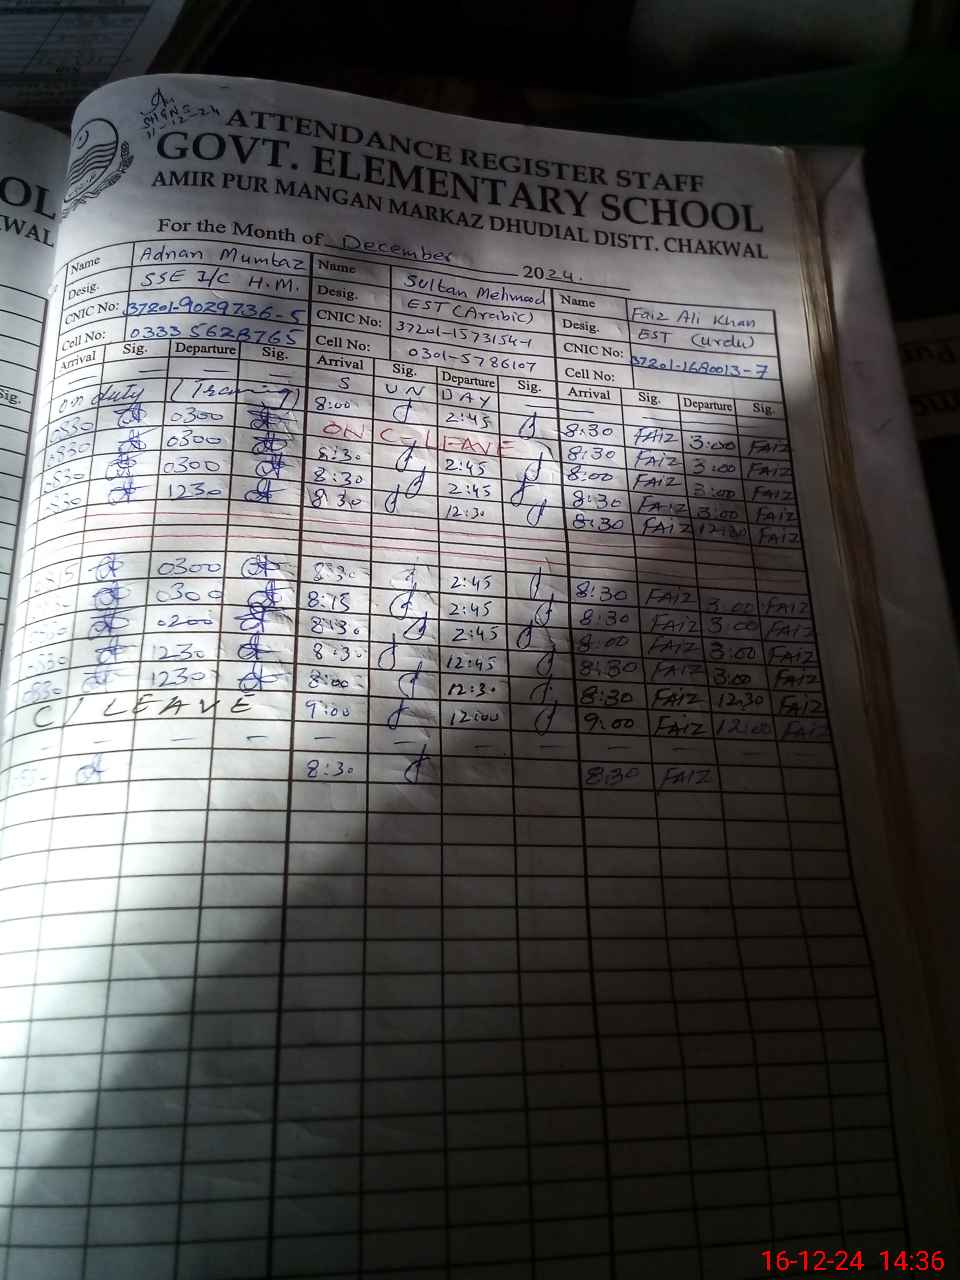 11-12-24
ATTENDANCE REGISTER STAFF
GOVT. ELEMENTARY SCHOOL
AMIR PUR MANGAN MARKAZ DHUDIAL DISTT. CHAKWAL
OL
KWAL
For the Month of December 2024.
Name Adnan Mumtaz Name Sultan Mehmood Name Faiz Ali Khan
Desig. SSE I/C H.M. Desig. EST (Arabic) Desig. EST (Urdu)
CNIC No: 37201-9029736-5 CNIC No: 37201-1573154-1 CNIC No: 37201-1680013-7
Cell No: 0333 5628765 Cell No: 0301-5786107 Cell No:
Sig.
Arrival Sig. Departure Sig. Arrival Sig. Departure Sig. Arrival Sig. Departure Sig.
— — — — S U N D A Y — — — —
on duty (Training) 8:00 2:45 8:30 FAIZ 3:00 FAIZ
0830 0300 ON C-LEAVE 8:30 FAIZ 3:00 FAIZ
0830 0300 8:30 2:45 8:00 FAIZ 3:00 FAIZ
0300 8:30 2:45 8:30 FAIZ 3:00 FAIZ
1230 8:30 12:30 8:30 FAIZ 12:30 FAIZ
0815 0300 8:30 2:45 8:30 FAIZ 3:00 FAIZ
0300 8:15 2:45 8:30 FAIZ 3:00 FAIZ
0200 8:30 2:45 8:00 FAIZ 3:00 FAIZ
1230 8:30 12:45 8:30 FAIZ 3:00 FAIZ
0830 1230 8:00 12:30 8:30 FAIZ 12:30 FAIZ
C/ LEAVE 9:00 12:00 9:00 FAIZ 12:00 FAIZ
— — — — — — — — — — — —
8:30 8:30 FAIZ
16-12-24 14:36